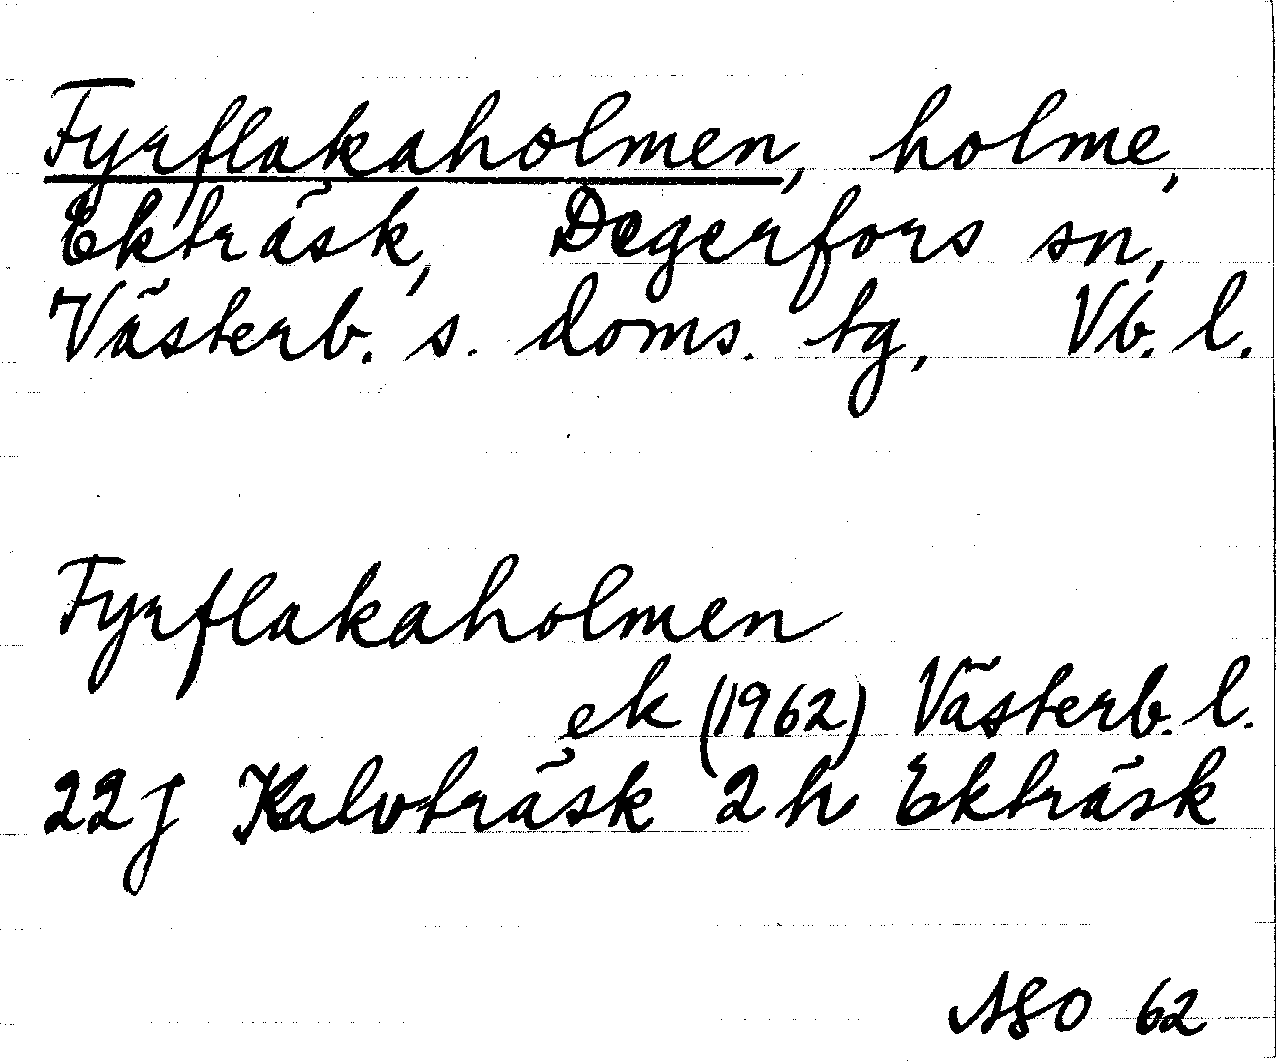 Fyrflakaholmen, holme,
Ekträsk, Degerfors sn,
Västerb. s. doms. tg, Vb. l.
Fyrflakaholmen
ek (1962) Västerb. l.
22J Kalvträsk 2h Ekträsk
ASO 62